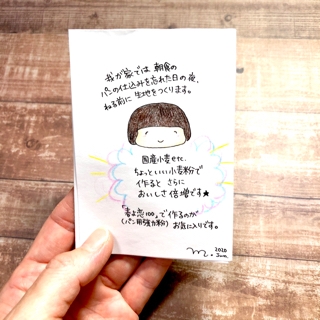 我が家では 朝食の
パンの仕込みを忘れた日の夜、
ねる前に 生地をつくります。
国産小麦せた、
ちょっといい小麦粉で
作ると さらに
おいしさ倍増です★
「春よ恋100」で作るのが
(パン用強力粉) お気に入りです。
m.
2020
Jun.